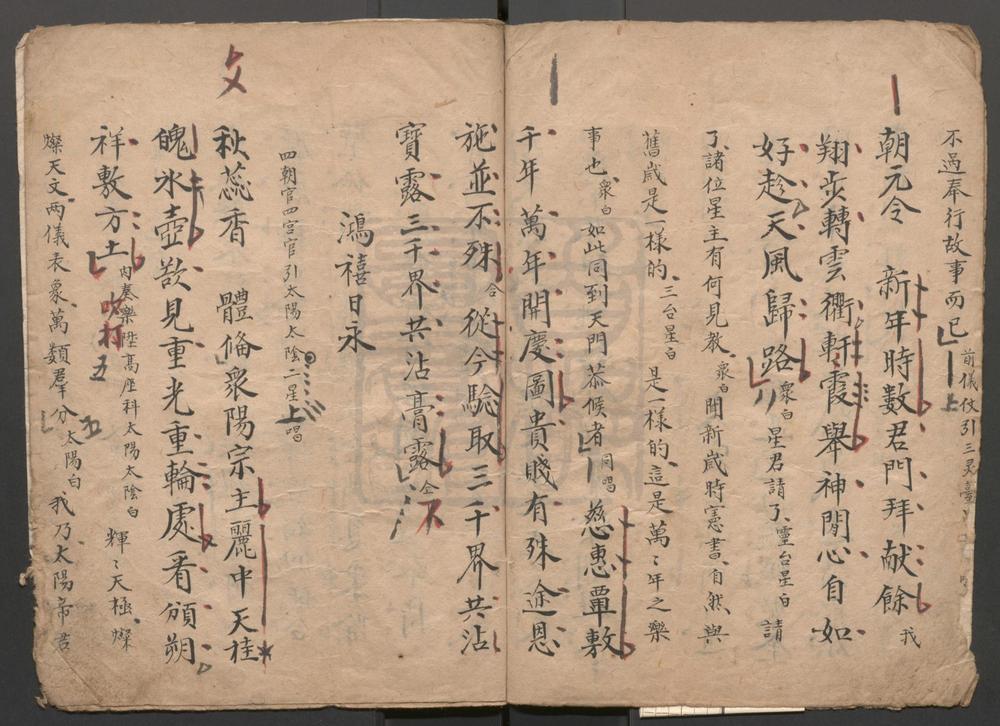 不過奉行故事而已 前儀仗引三灵臺
朝元令 新年時數君門拜献餘 我
翔步轉雲衢軒霞舉神閒心自如
好趁天風歸路 衆白 星君請了 靈台星白 請
了諸位星主有何見教 衆白 聞新歲時憲書自然與
舊歲是一樣的 三台星白 是一樣的這是萬〻年之樂
事也 衆白 如此同到天門恭候者 同唱 慈惠覃敷
千年萬年開慶圖貴賤有殊途恩
施並不殊 合 從今驗取三千界共沾
寶露三千界共沾膏露 仝
鴻禧日永
四朝官四宫官引太陽太陰二星上唱
文
秋蕊香 體俻衆陽宗主麗中天桂
魄氷壺歘見重光重輪處看頒朔
祥敷方土 内奏樂陞高座科太陽太陰白 輝〻天極燦
吹打五
燦天文两儀表象萬類羣分 太陽白 我乃太陽帝君
五